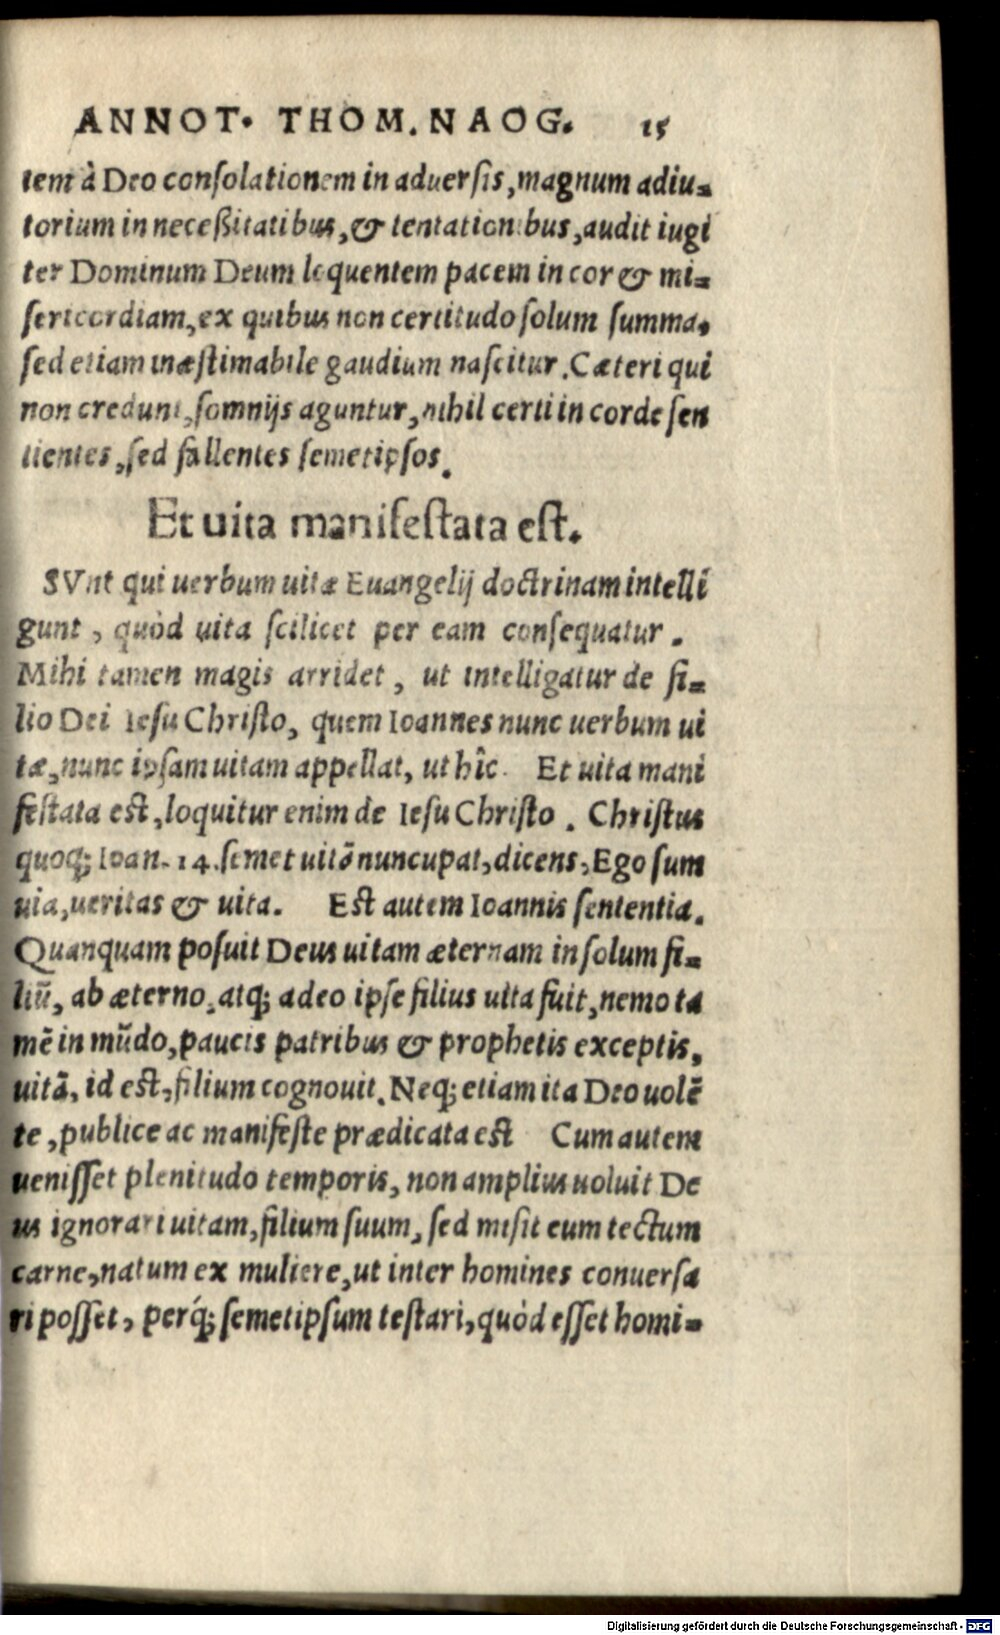 ANNOT. THOM. NAOG. 15
tem à Deo conſolationem in aduerſis, magnum adiu-
torium in neceßitatibus, & tentationibus, audit iugi
ter Dominum Deum loquentem pacem in cor & mi-
ſericordiam, ex quibus non certitudo ſolum ſumma,
ſed etiam inæſtimabile gaudium naſcitur. Cæteri qui
non credunt, ſomnijs aguntur, nihil certi in corde ſen
tientes, ſed fallentes ſemetipſos.
Et uita manifeſtata eſt.
SVnt qui uerbum uitæ Euangelij doctrinam intelli
gunt, quòd uita ſcilicet per eam conſequatur.
Mihi tamen magis arridet, ut intelligatur de fi-
lio Dei Ieſu Chriſto, quem Ioannes nunc uerbum ui
tæ, nunc ipſam uitam appellat, ut hîc. Et uita mani
feſtata eſt, loquitur enim de Ieſu Chriſto. Chriſtus
quoq; Ioan. 14. ſemet uitā nuncupat, dicens, Ego ſum
uia, ueritas & uita. Eſt autem Ioannis ſententia.
Quanquam poſuit Deus uitam æternam in ſolum fi-
liū, ab æterno, atq; adeo ipſe filius uita fuit, nemo ta
mē in mūdo, paucis patribus & prophetis exceptis,
uitā, id eſt, filium cognouit. Neq; etiam ita Deo uolē
te, publice ac manifeſte prædicata eſt Cum autem
ueniſſet plenitudo temporis, non amplius uoluit De
us ignorari uitam, filium ſuum, ſed miſit eum tectum
carne, natum ex muliere, ut inter homines conuerſa
ri poſſet, perq́; ſemetipſum teſtari, quòd eſſet homi-
Digitalisierung gefördert durch die Deutsche Forschungsgemeinschaft - DFG